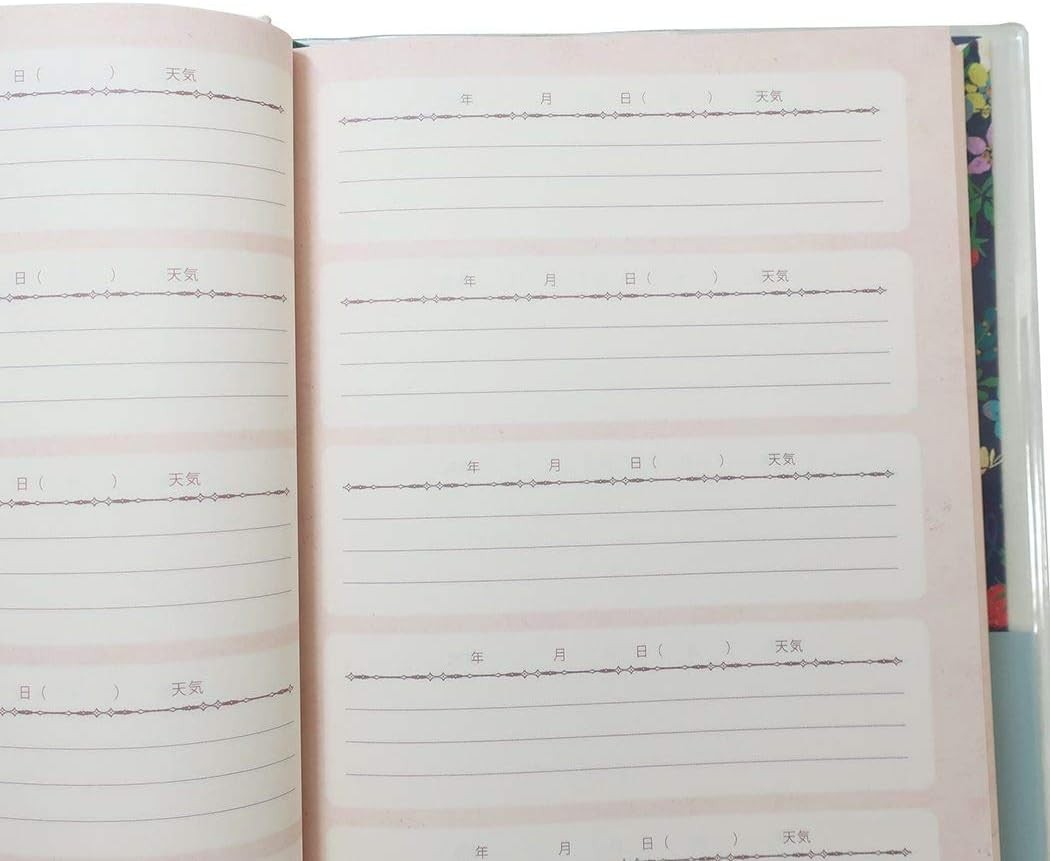 日（　　　）　天気
日（　　　）　天気
日（　　　）　天気
日（　　　）　天気
年　月　日（　　　）　天気
年　月　日（　　　）　天気
年　月　日（　　　）　天気
年　月　日（　　　）　天気
年　月　日（　　　）　天気